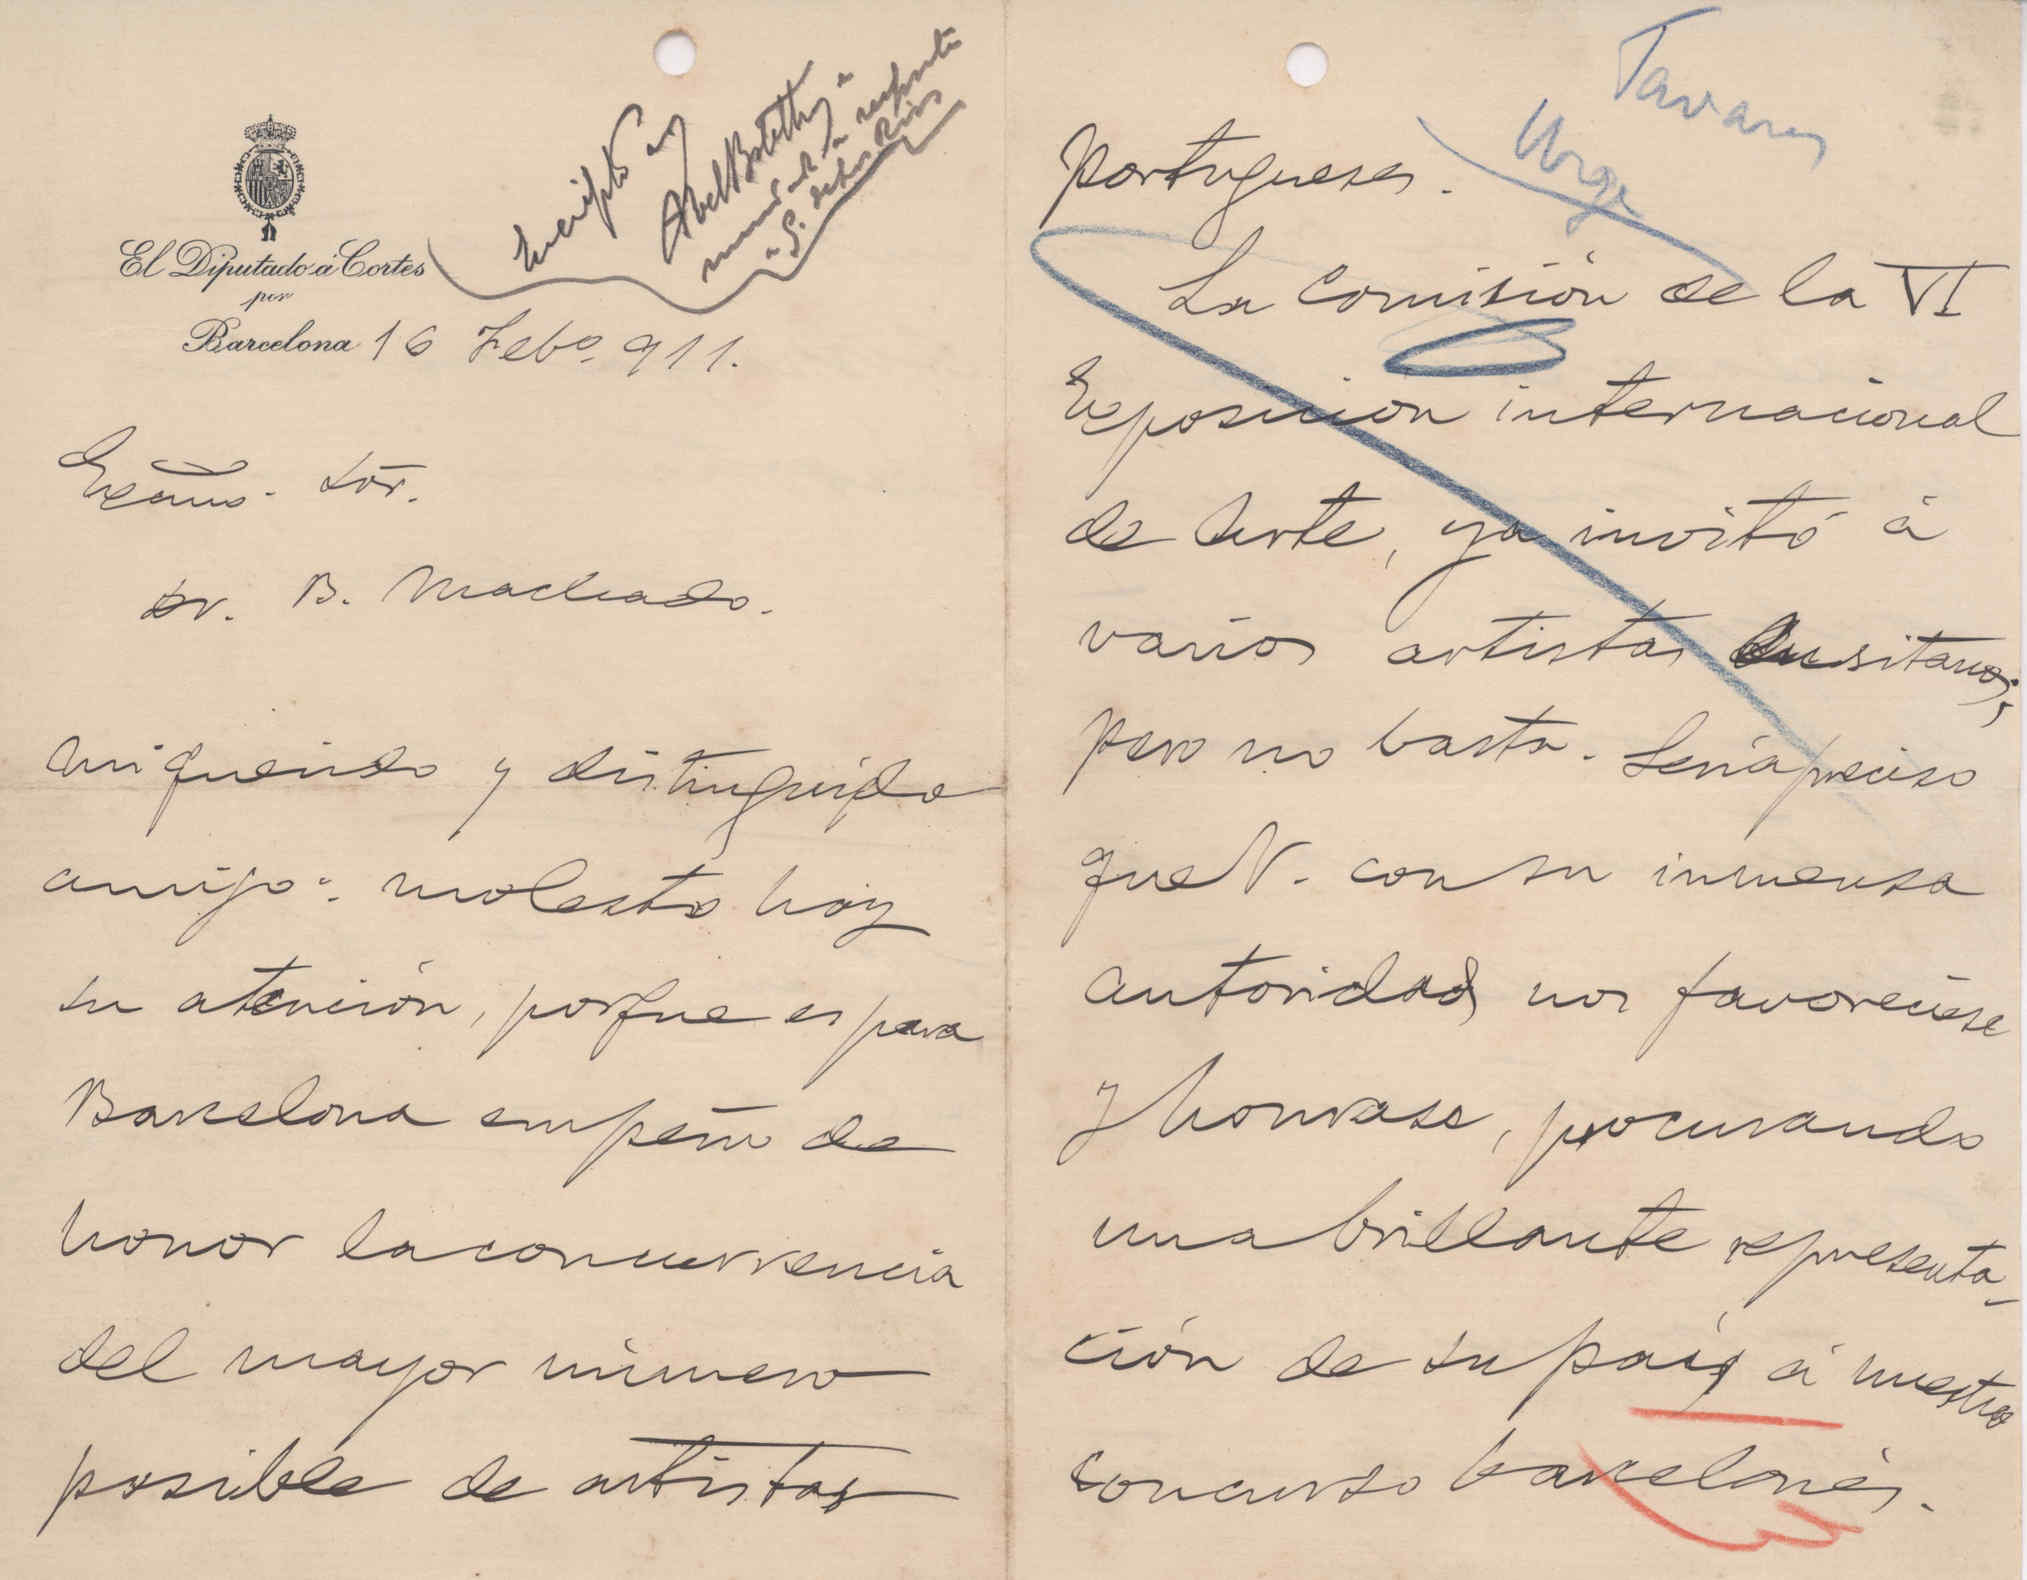 El Diputado á Cortes
por
Barcelona 16 Febº. 911.
Abel Botelho
Excmo. Sor.
Dr. B. Machado.
Mi querido y distinguido
amigo: molesto hoy
su atención, porque es para
Barcelona empeño de
honor la concurrencia
del mayor número
posible de artistas
Tavares
Urge
portugueses.
La Comisión de la VI
Exposicion internacional
de Arte, ya invitó á
varios artistas lusitanos;
pero no basta. Sería preciso
que V. con su inmensa
autoridad nos favoreciese
y honrase, procurando
una brillante representa-
ción de su país á nuestro
concurso barcelonés.